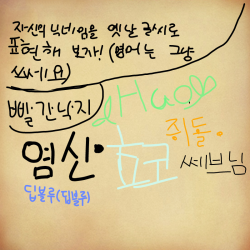 자신의 닉네임을 옛날 글씨로
표현해 보자! (영어는 그냥
쓰세요)
빨간낙지
쥐돌.
염신.
쎄브님
딥블루(딥블루)